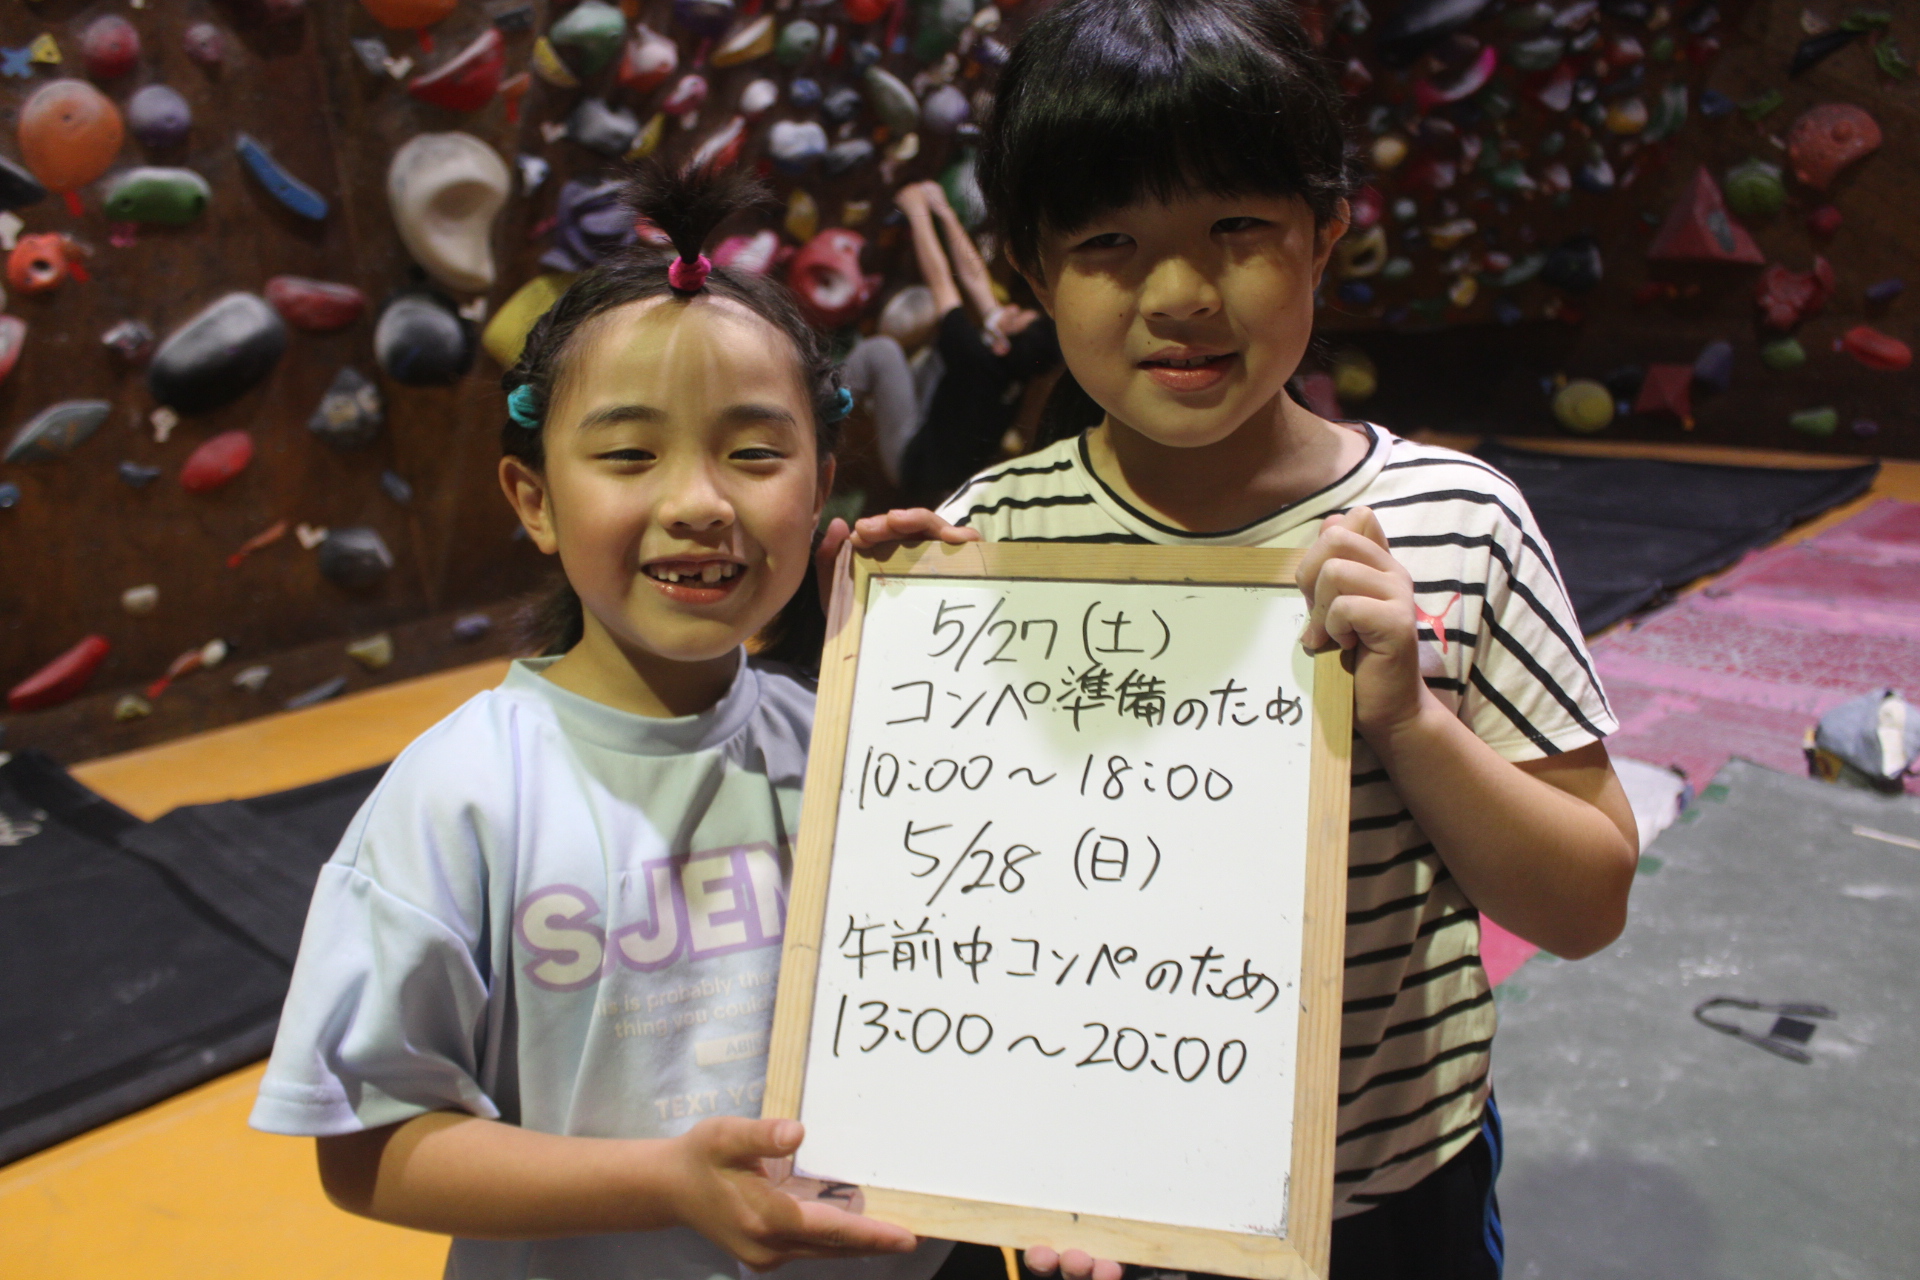 5/27(土)
コンペ準備のため
10:00～18:00
5/28(日)
午前中コンペのため
13:00～20:00
S.JEN
is is probably the
thing you could
TEXT YO